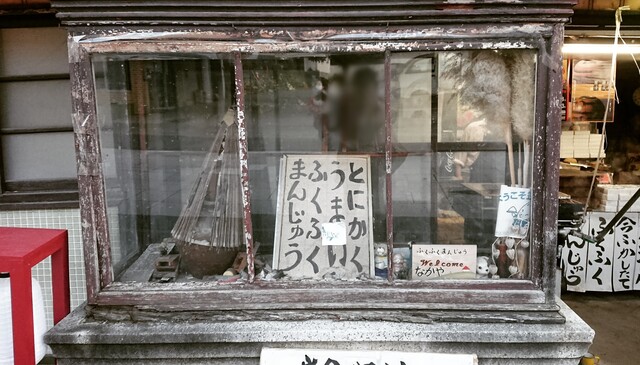 とにかく
うまい
ふくふく
まんじゅう
ふくふくまんじゅう
Welcome
なかや
ようこそ
今ふかしたて
ふくふく
んじゅう